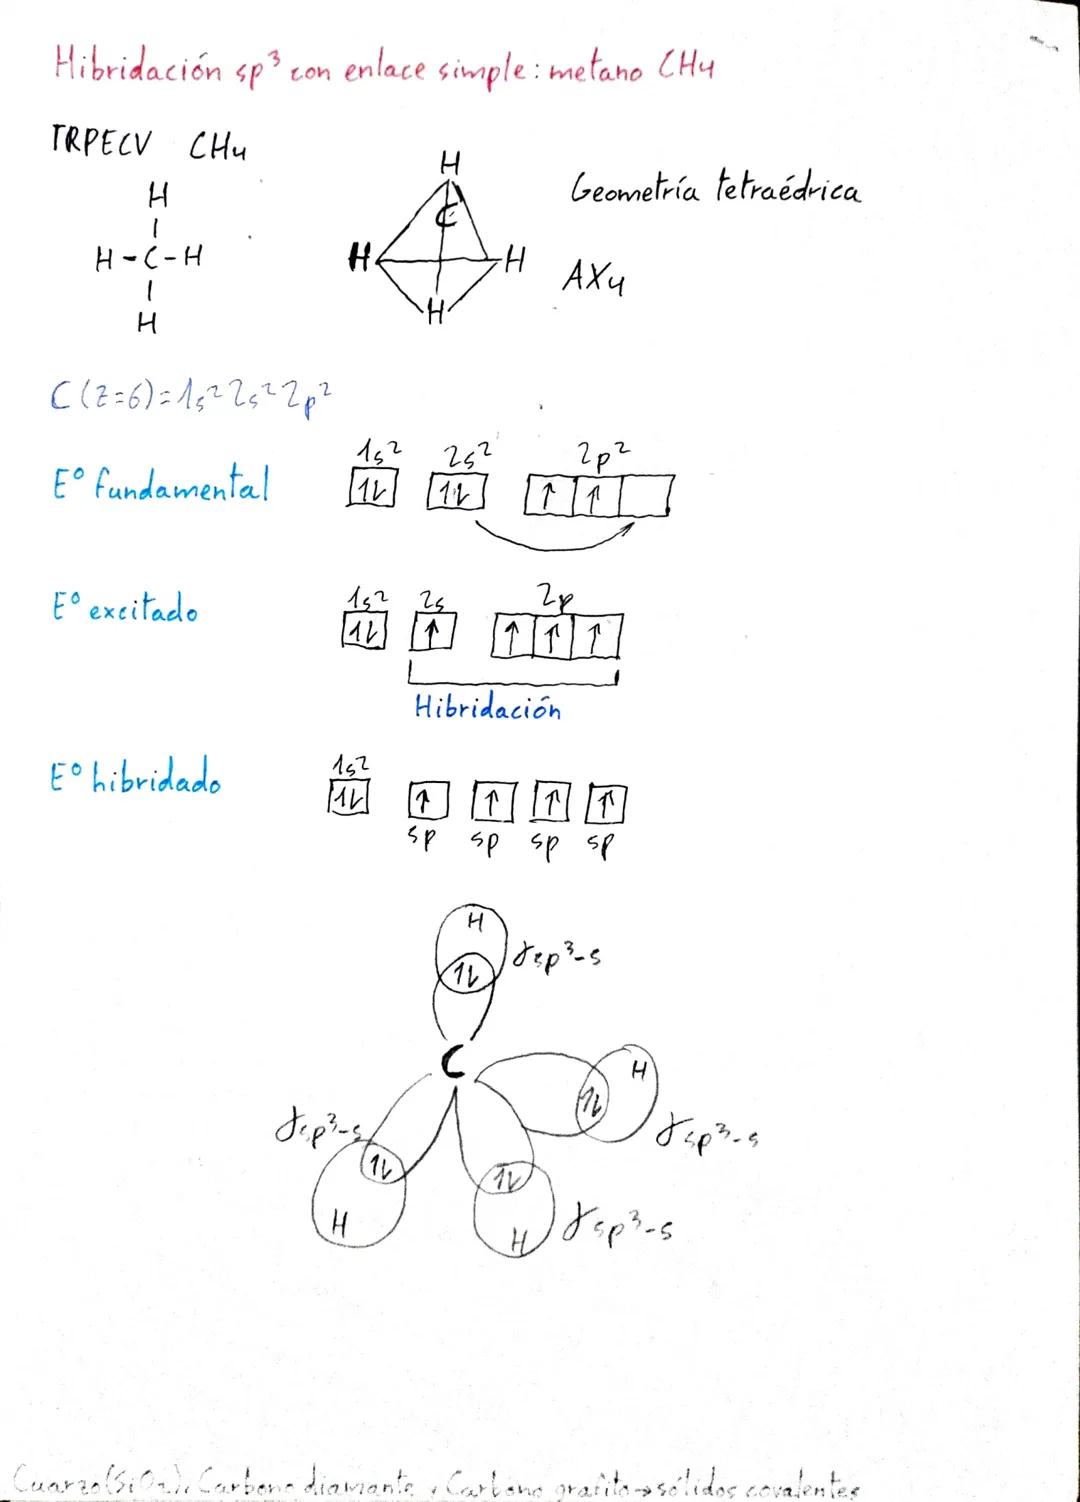 Hibridación sp³ con enlace simple: metano CH4
TRPECV CH4
H
H-C-H
H
H
C
H H
H
Geometría tetraédrica
AX4
C (Z=6)=1s² 2s² 2p²
1s² 2s² 2p²
Eº fundamental ↑↓ ↑↓ ↑ ↑
1s² 2s 2p
Eº excitado ↑↓ ↑ ↑ ↑ ↑
Hibridación
1s²
Eº hibridado ↑↓ ↑ ↑ ↑ ↑
sp sp sp sp
H
↑↓ σsp³-s
C
H
↑↓
σsp³-s σsp³-s
↑↓ ↑↓
H H σsp³-s
Cuarzo(SiO2), Carbono diamante, Carbono grafito→sólidos covalentes